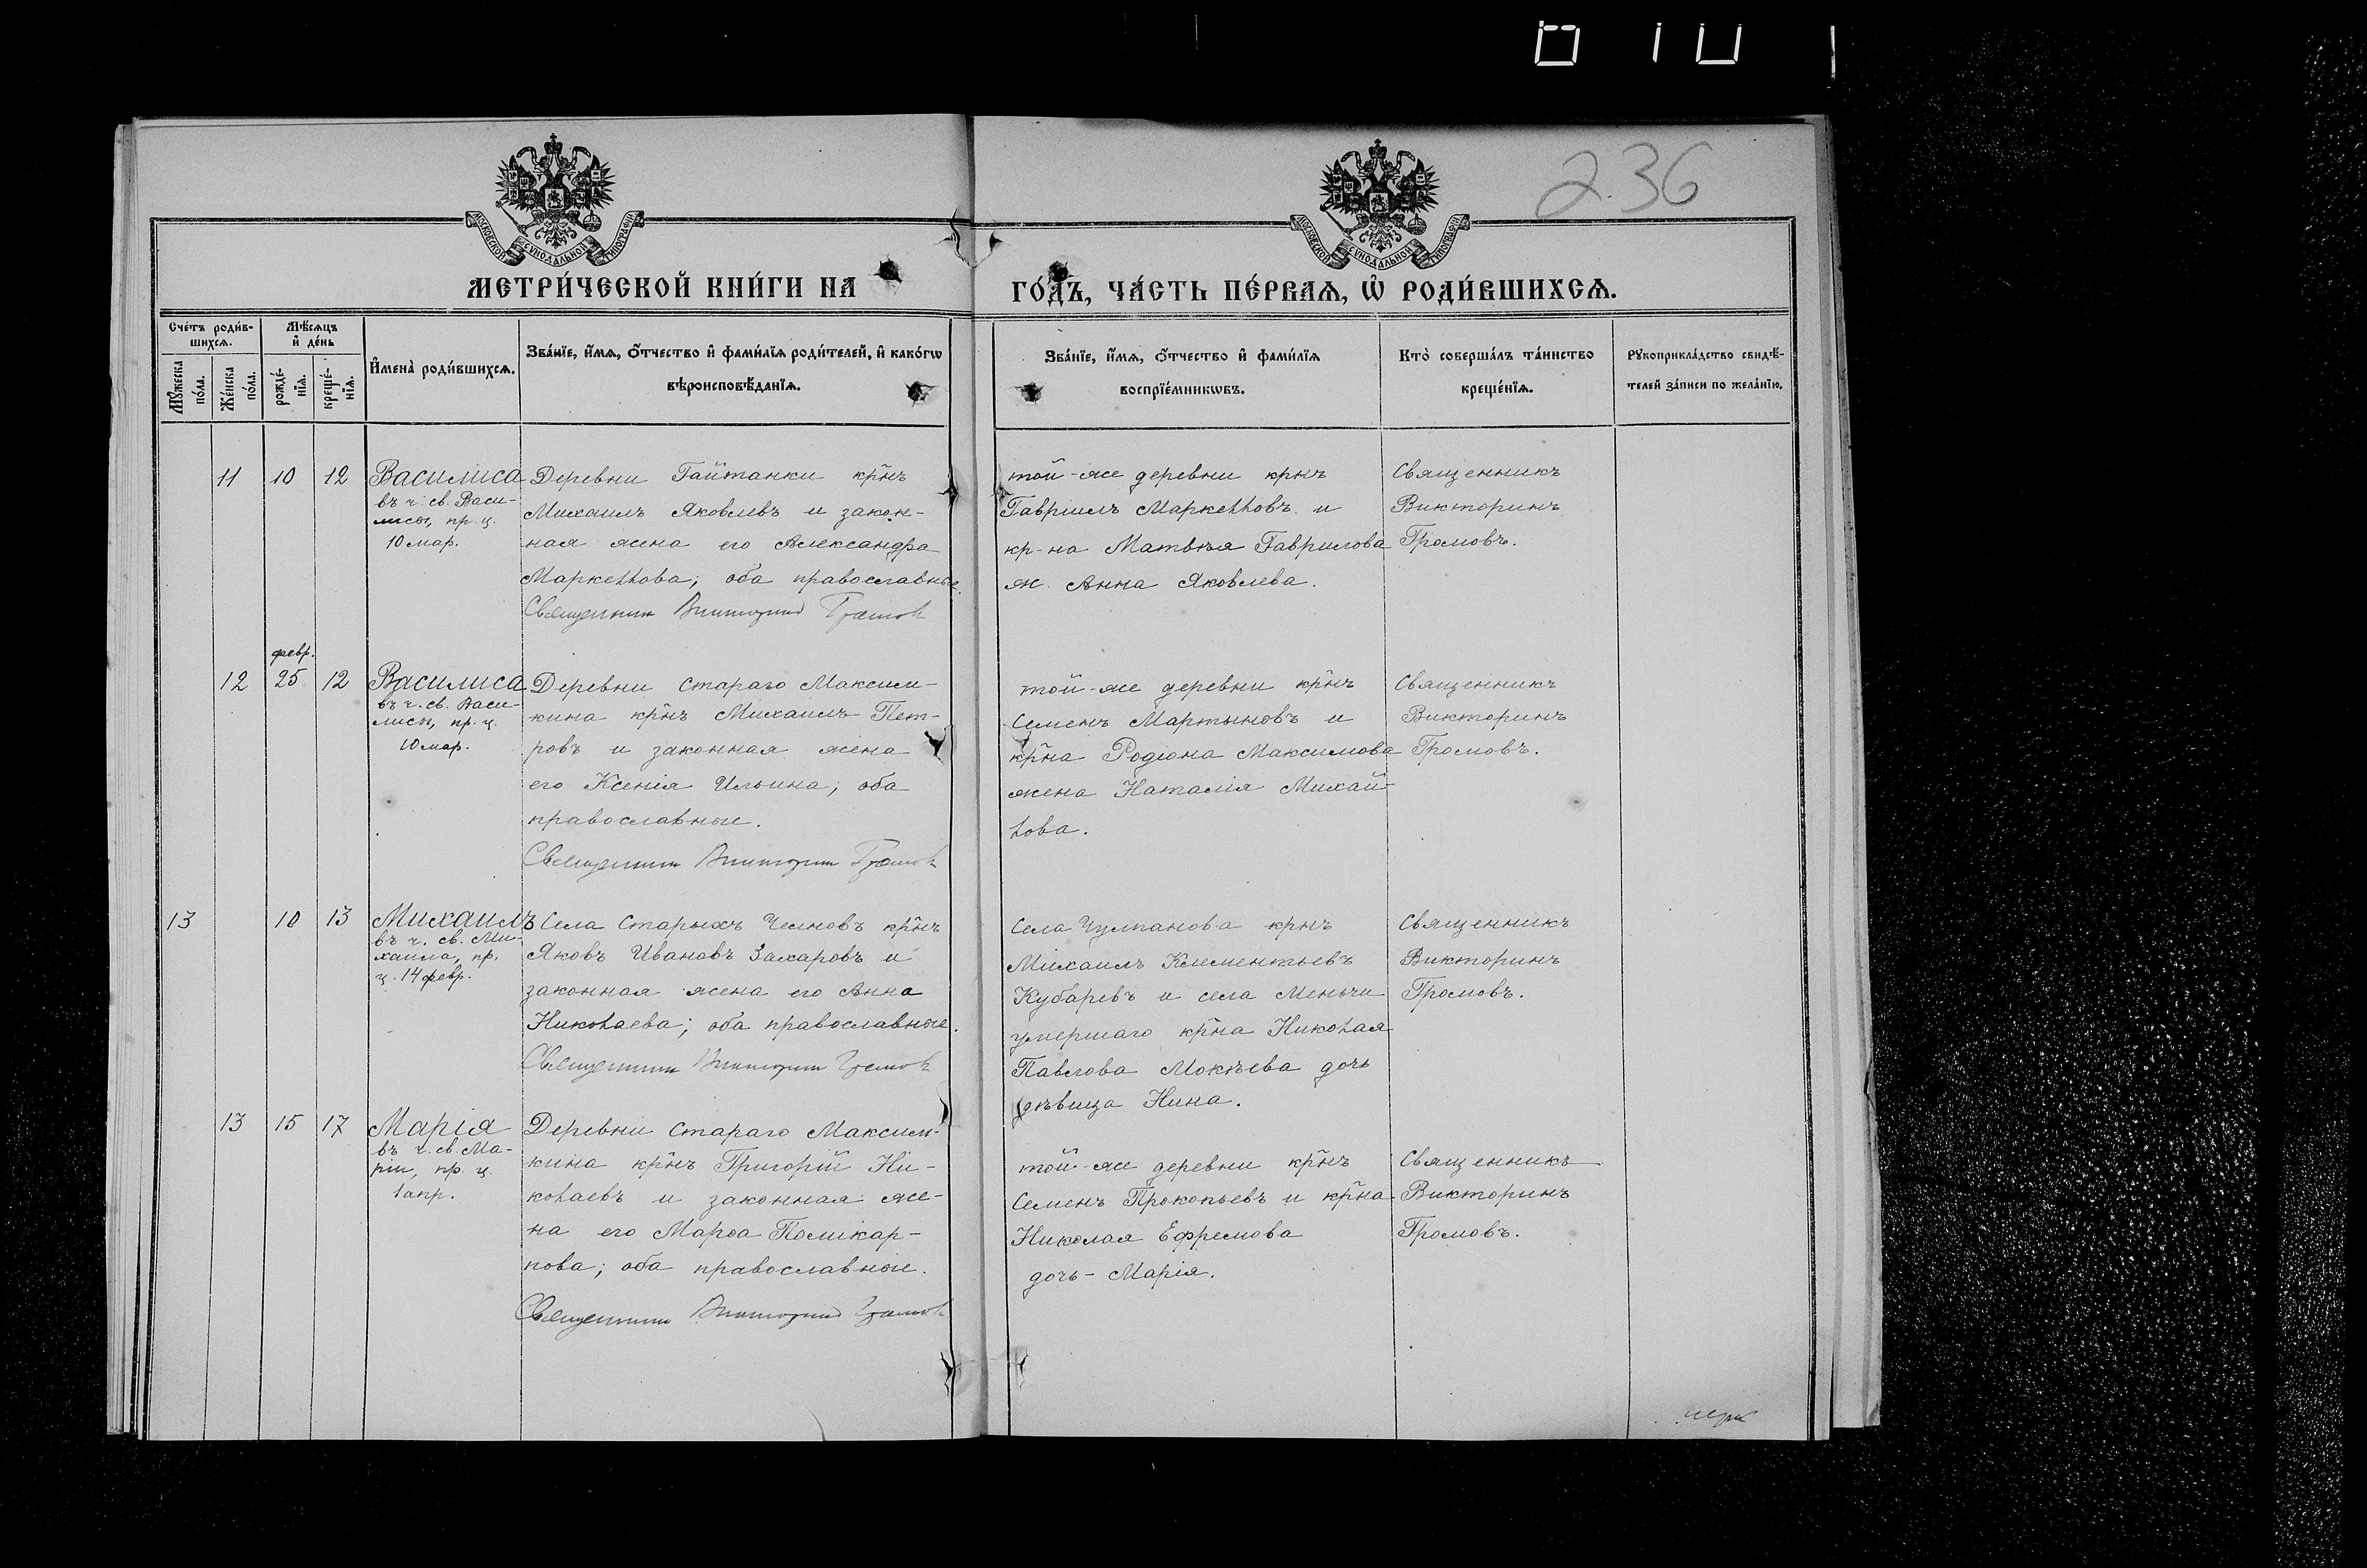 236
МОСКОВСКОЙ СУНОДАЛЬНОЙ ТИПОГРАФІИ
МОСКОВСКОЙ СУНОДАЛЬНОЙ ТИПОГРАФІИ
МЕТРИ́ЧЕСКОЙ КНИ́ГИ НА
ГО́ДЪ, ЧА́СТЬ ПЕ́РВАѦ, Ѡ҆ РОДИ́ВШИХСѦ.
Сче́тъ роди́в-
шихсѧ.
Мѣ́сѧцъ
и҆ де́нь
Мꙋ́жеска
по́ла.
Же́нска
по́ла.
рожде́-
нїѧ.
креще́-
нїѧ.
И҆мена̀ роди́вшихсѧ.
Зва́нїе, и҆́мѧ, ѻ҆́тчество и҆ фами́лїѧ роди́телей, и҆ како́гѡ
вѣроисповѣ́данїѧ.
Зва́нїе, и҆́мѧ, ѻ҆́тчество и҆ фами́лїѧ
воспрїе́мникѡвъ.
Кто̀ соверша́лъ та́инство
креще́нїѧ.
Рꙋкоприкла́дство свидѣ́-
телей за́писи по жела́нїю.
11 10 12
Василиса
въ ч. св. Васи-
лисы, пр. ц.
10 мар.
Деревни Гайтанки крнъ
Михаилъ Яковлевъ и закон-
ная жена его Александра
Маркеллова; оба православные.
Священникъ Викторинъ Громовъ
той-же деревни крнъ
Гавріилъ Маркелловъ и
кр-на Матвѣя Гаврилова
ж. Анна Яковлева.
Священникъ
Викторинъ
Громовъ.
февр.
12 25 12
Василиса
въ ч. св. Васи-
лисы, пр. ц.
10 мар.
Деревни Стараго Максим-
кина крнъ Михаилъ Пет-
ровъ и законная жена
его Ксенія Ильина; оба
православные.
Священникъ Викторинъ Громовъ
той-же деревни крнъ
Семенъ Мартыновъ и
крна Родіона Максимова
жена Наталія Михай-
лова.
Священникъ
Викторинъ
Громовъ.
13 10 13
Михаилъ
въ ч. св. Ми-
хаила, пр.
ц. 14 февр.
Села Старыхъ Челновъ крнъ
Яковъ Ивановъ Захаровъ и
законная жена его Анна
Николаева; оба православные.
Священникъ Викторинъ Громовъ
Села Чулпанова крнъ
Михаилъ Клементьевъ
Кубаревъ и села Меньчи
умершаго крна Николая
Павлова Мокѣева дочь
дѣвица Нина.
Священникъ
Викторинъ
Громовъ.
13 15 17
Марія
въ ч. св. Ма-
ріи, пр. ц.
1 апр.
Деревни Стараго Максим-
кина крнъ Григорій Ни-
колаевъ и законная же-
на его Марѳа Поликар-
пова; оба православные.
Священникъ Викторинъ Громовъ
той-же деревни крнъ
Семенъ Прокопьевъ и крна
Николая Ефремова
дочь - Марія.
Священникъ
Викторинъ
Громовъ.